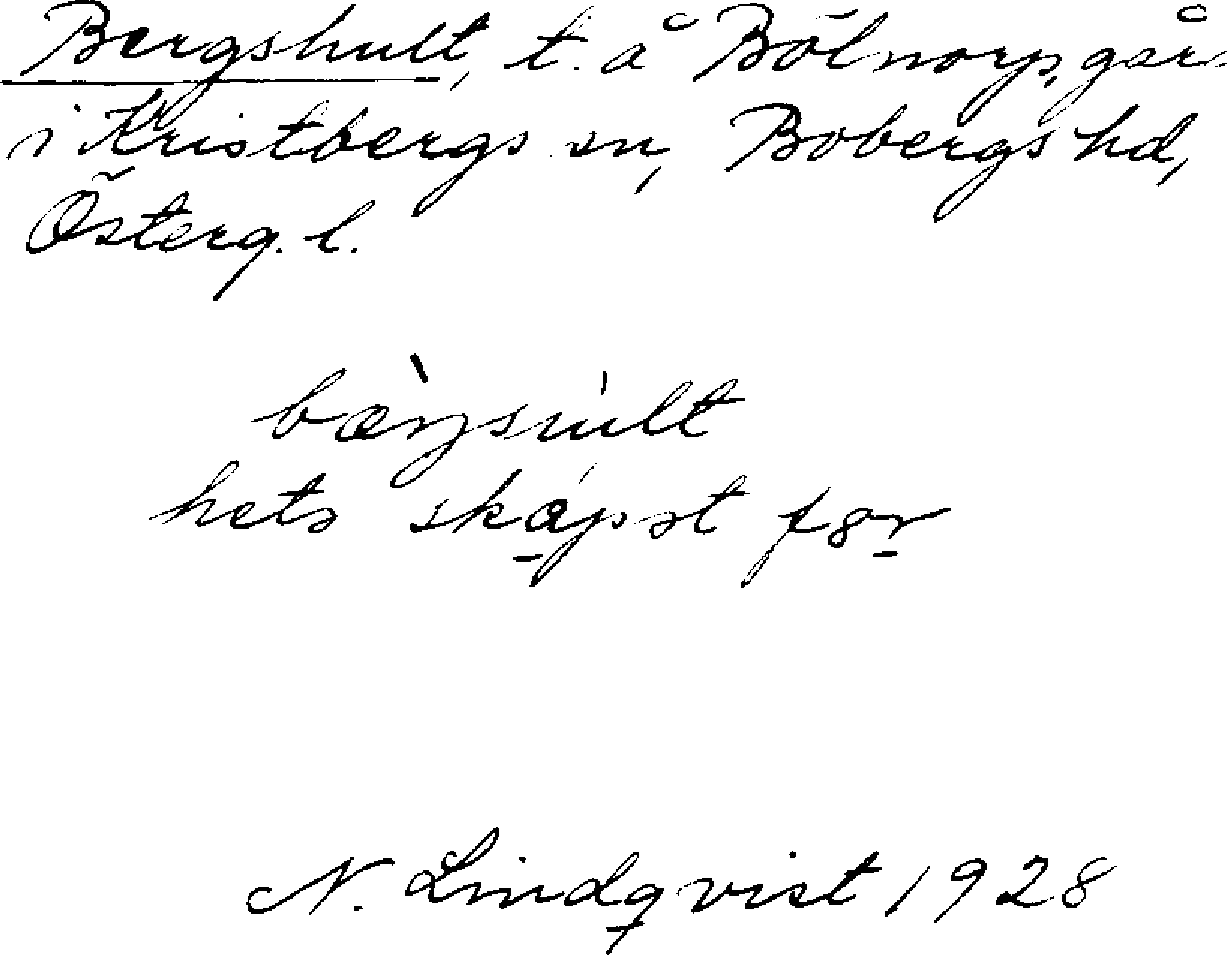 Bergshult, t. å Bölnorp, går
i Kristbergs sn, Bobergs hd,
Österg. l.
hets skåpst før
N. Lindqvist 1928